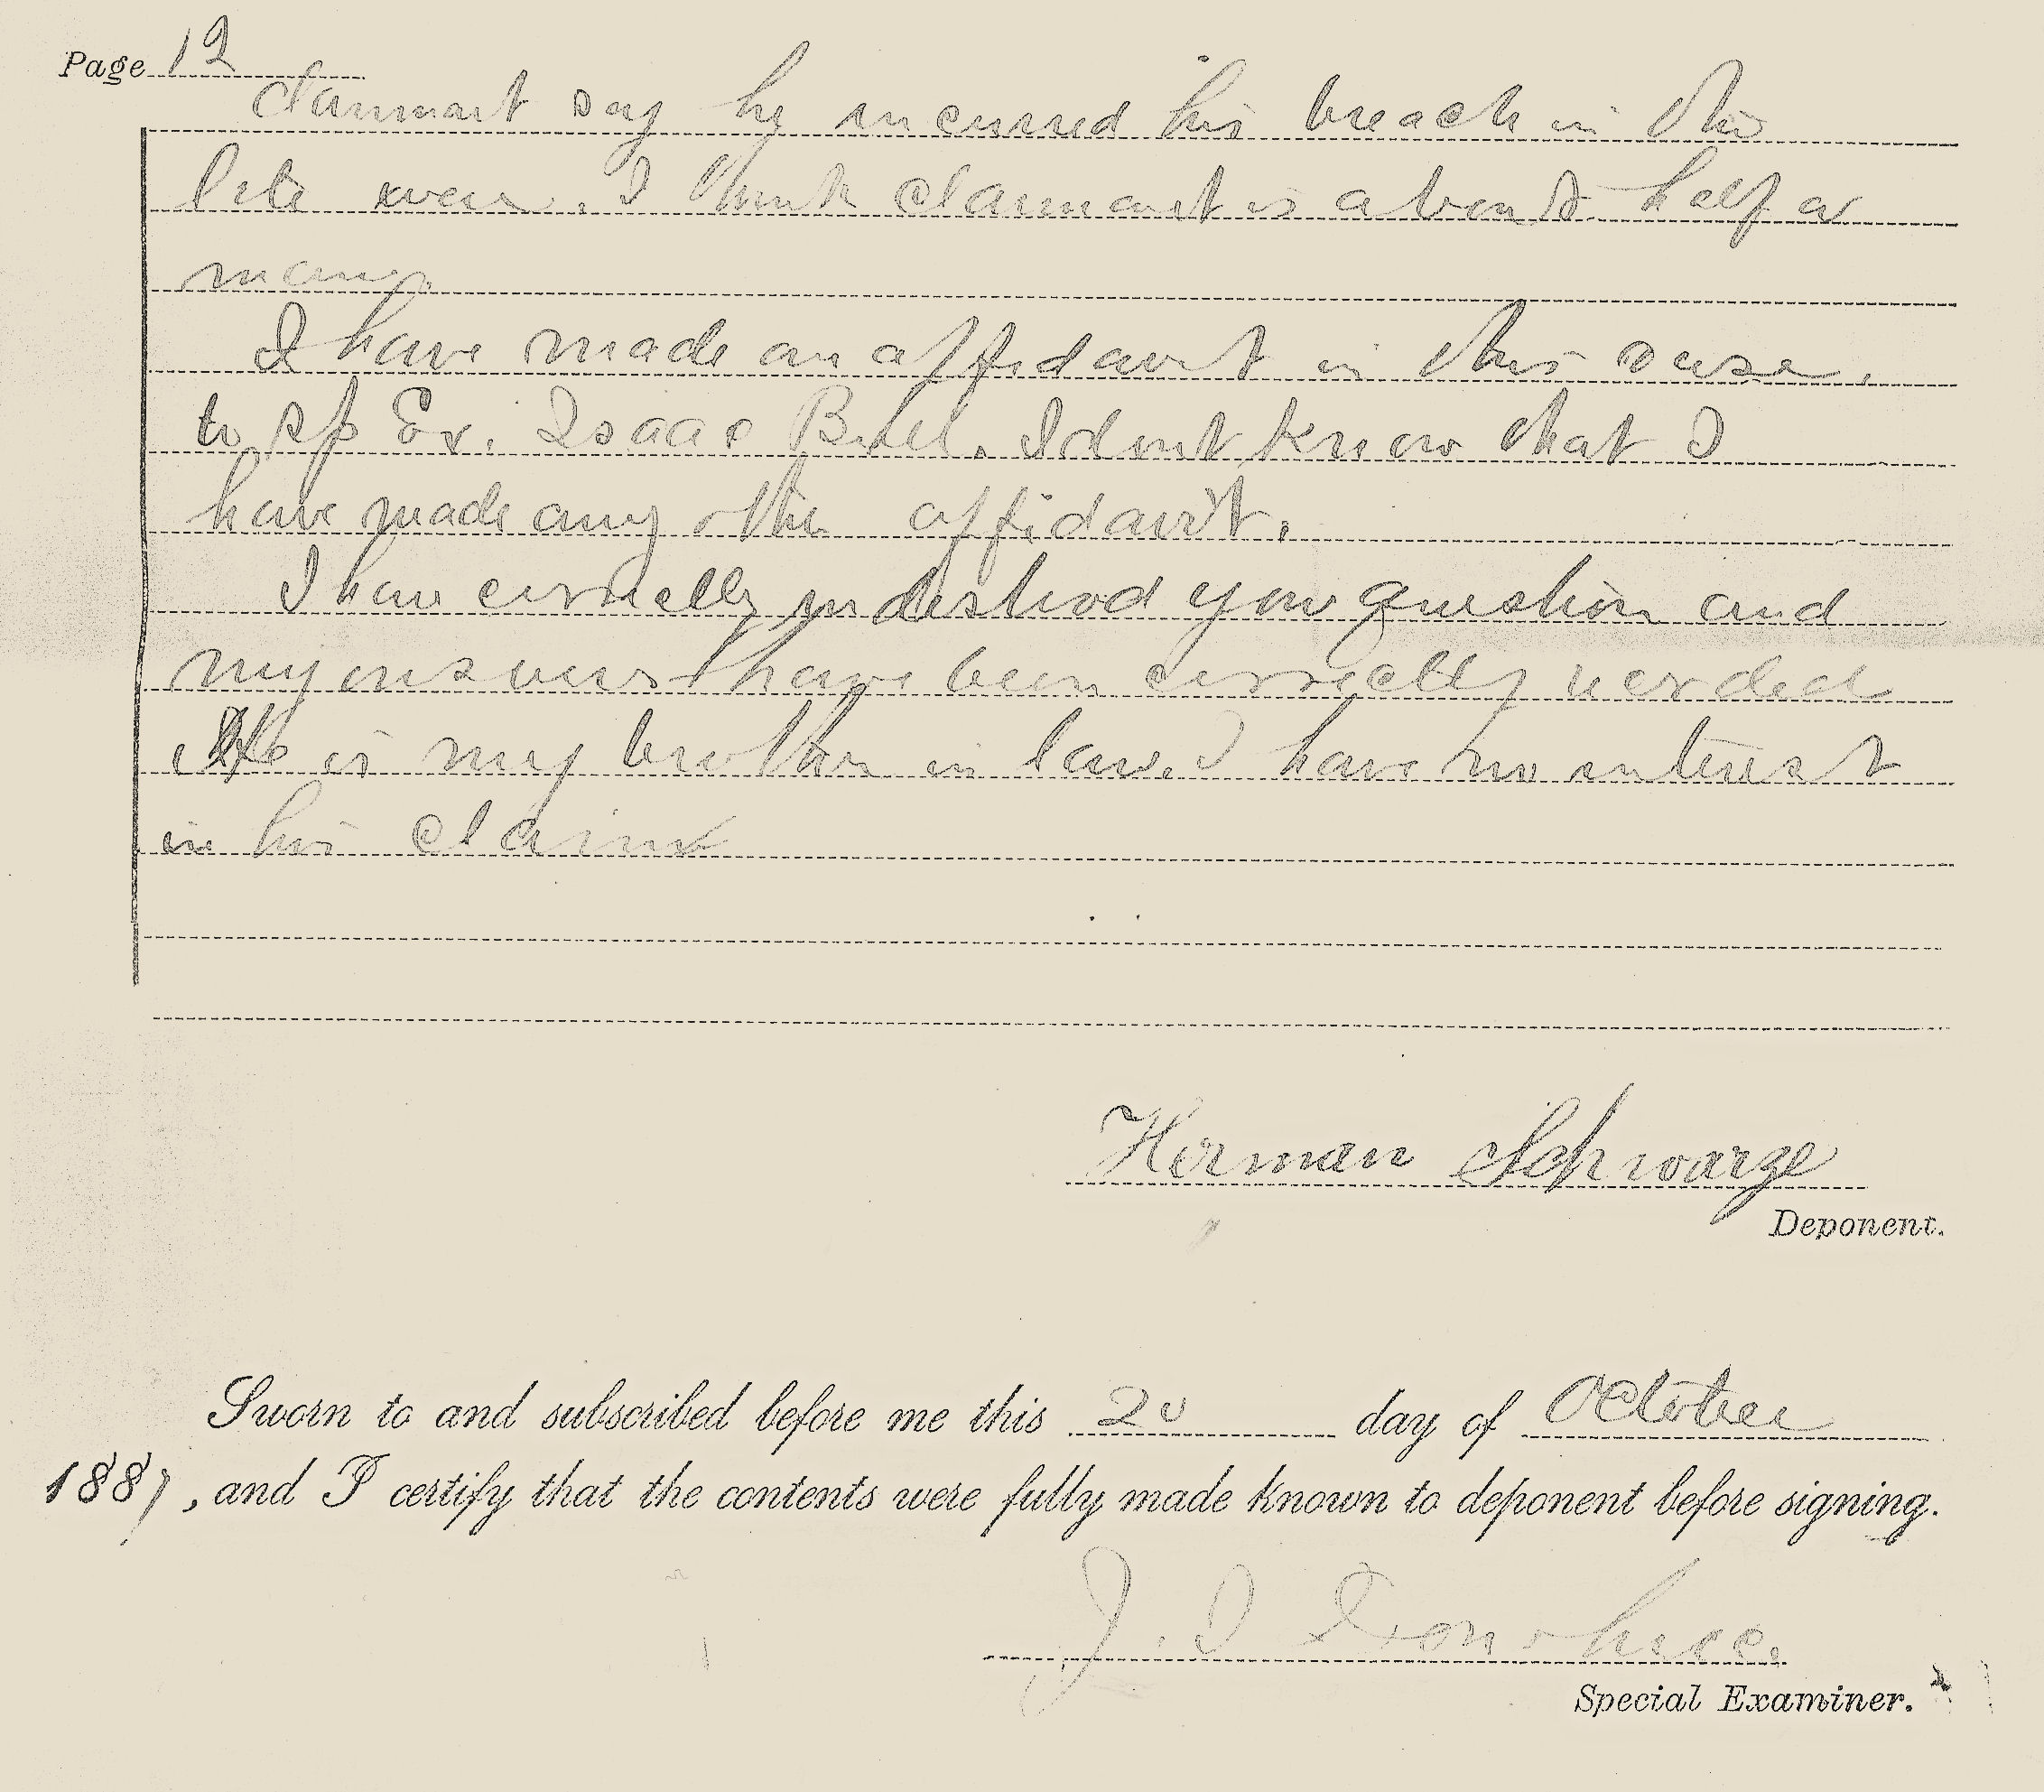 Page 12
claimant say he incurred his breach in the
late war. I think claimant is about half a
man.
I have made an affidavit in this case.
to Sp Ex. Isaac I dont know that I
have made any other affidavit.
I have correctly understood your question and
my answers have been correctly recorded
He is my brother in law. I have no interest
in his claim
Herman Schwarze
Deponent.
Sworn to and subscribed before me this 20 day of October
1887, and I certify that the contents were fully made known to deponent before signing.
J. D Donohue.
Special Examiner.